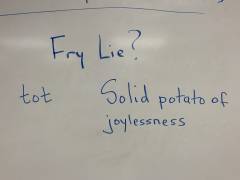 Fry Lie?
tot Solid potato of
joylessness